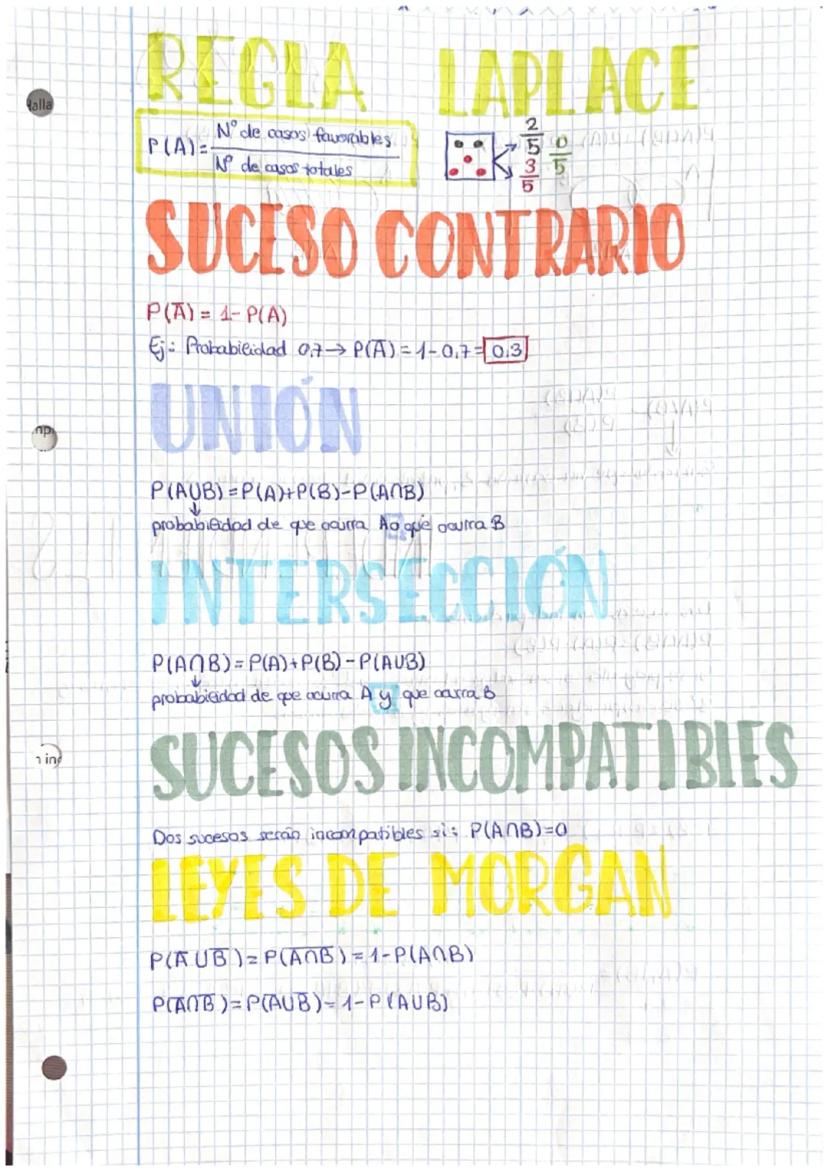 REGLA LAPLACE
P(A)= Nº de casos favorables / Nº de casos totales
2/5 0/5
3/5
SUCESO CONTRARIO
P(A̅) = 1-P(A)
Ej: Probabilidad 0,7→ P(A̅) = 1-0,7= 0,3
UNIÓN
P(A∪B)=P(A)+P(B)-P(A∩B)
↓
probabilidad de que ocurra A o que ocurra B
INTERSECCIÓN
P(A∩B)= P(A)+P(B)-P(A∪B)
↓
probabilidad de que ocurra A y que ocurra B
SUCESOS INCOMPATIBLES
Dos sucesos serán incompatibles si: P(A∩B)=0
LEYES DE MORGAN
P(A̅ ∪ B̅)= P(A̅∩̅B̅) = 1-P(A∩B)
P(A̅∩B̅)= P(A̅∪̅B̅)= 1-P(A∪B)